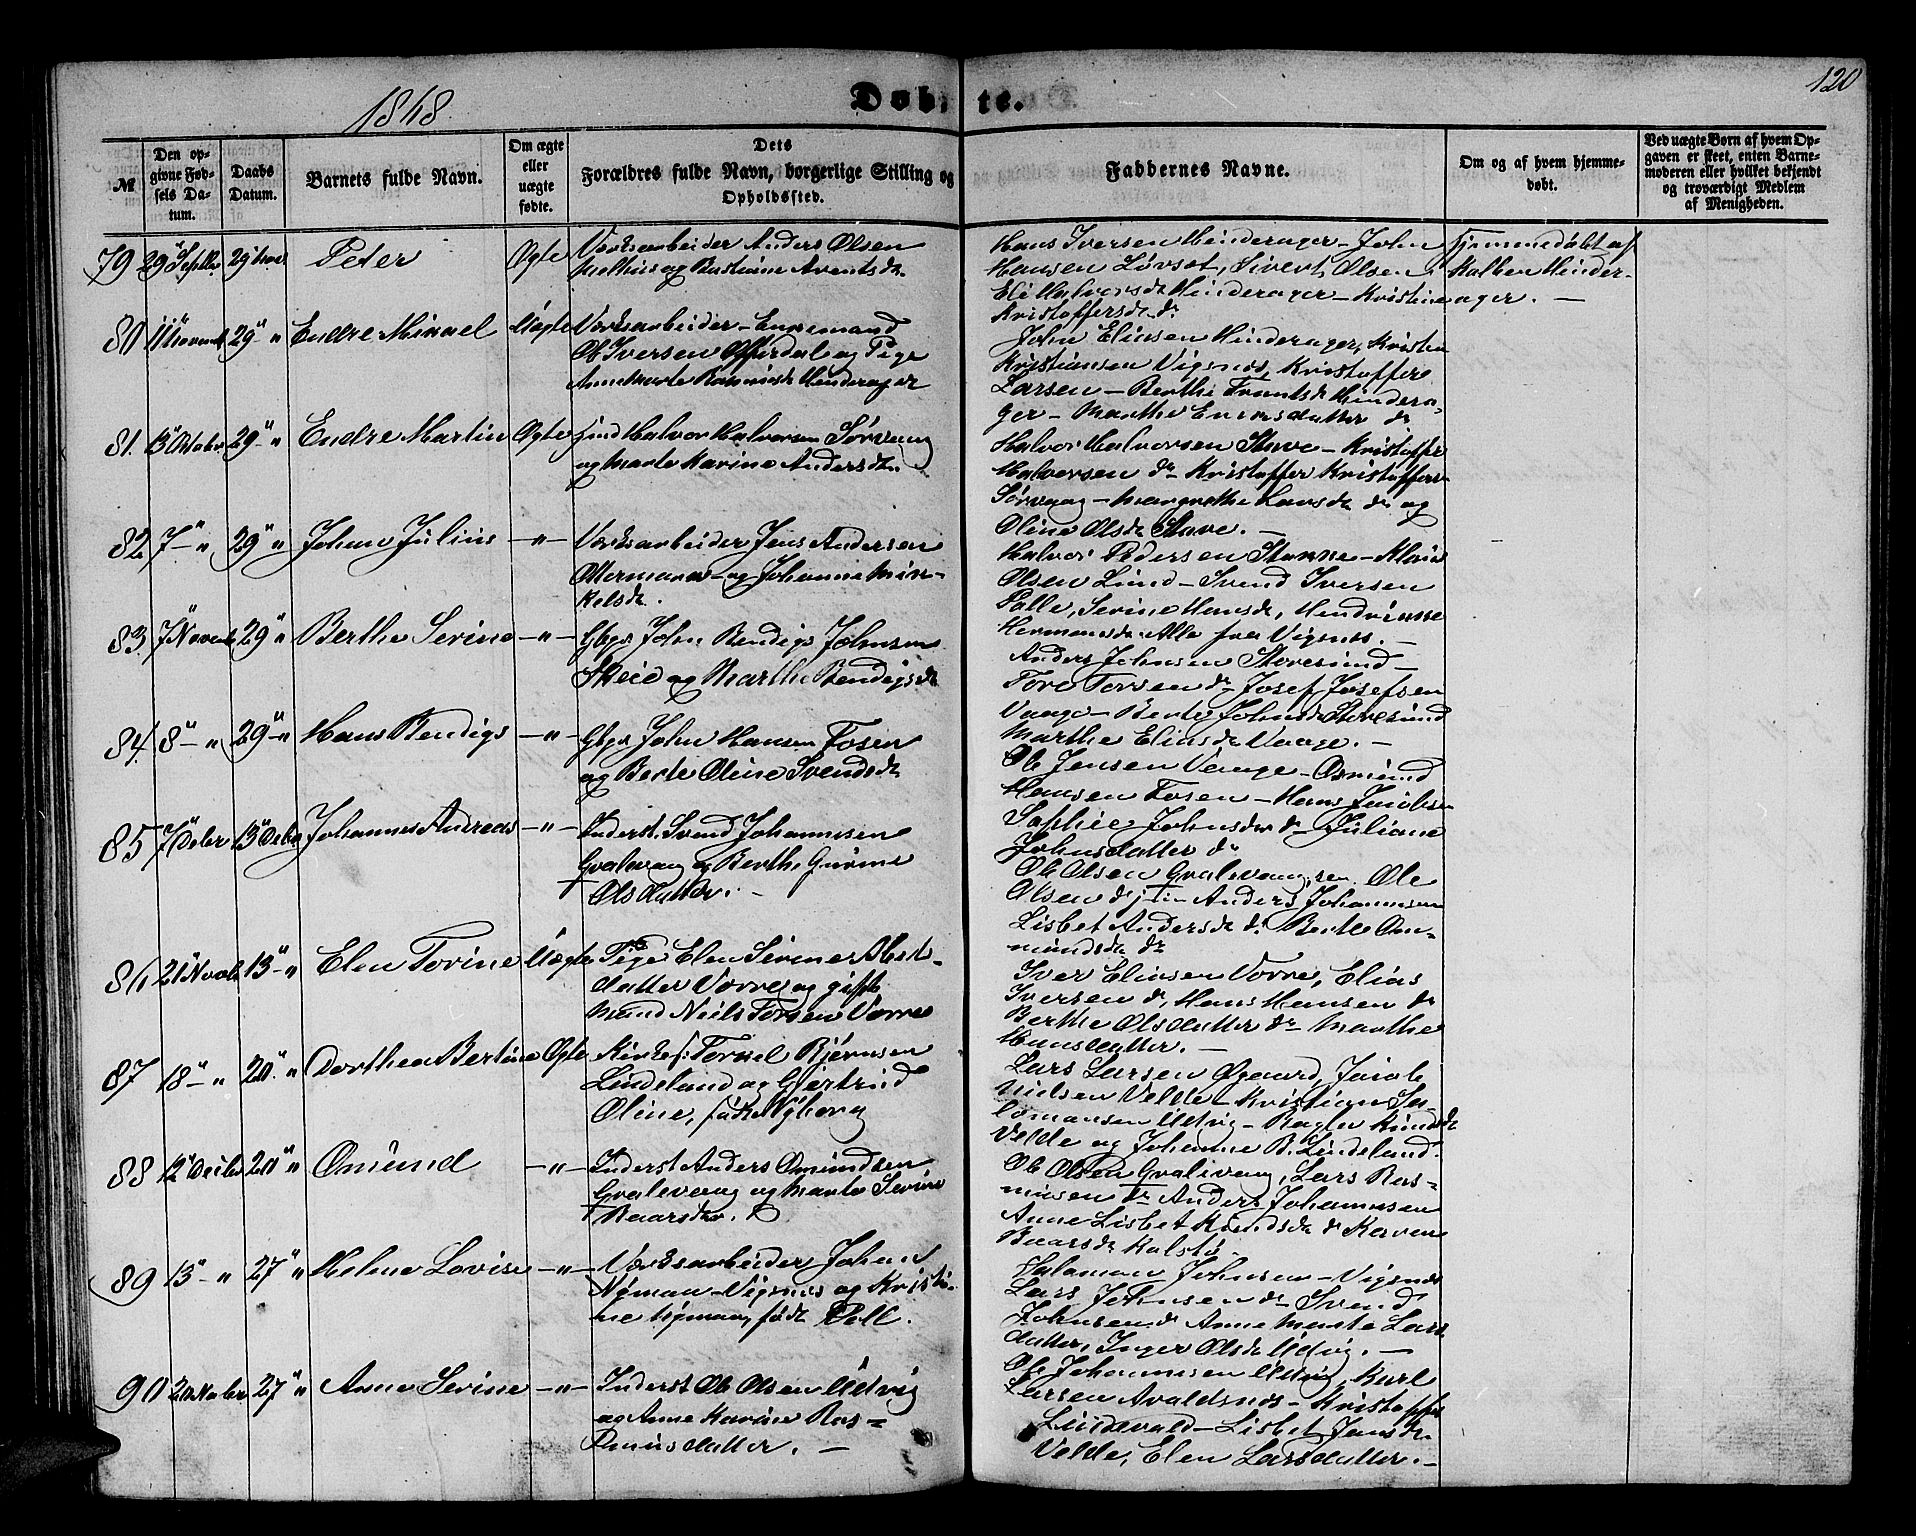 1868
Døbte.
120
№
Den opgivne Fødsels Datum.
Daabs Datum.
Barnets fulde Navn.
Om ægte eller uægte fødte.
Dets Forældres fulde Navn, borgerlige Stilling og Opholdssted.
Faddernes Navne.
Om og af hvem hjemmedøbt.
Ved uægte Børn af hvem Opgaven er skeet, enten Barnemoderen eller hvilket bekjendt og troværdigt Medlem af Menigheden.
79 29 Septbr 29 Peter Ægte Værksarbeider Anders Olsen
og Bastiane Arentsdr
Hans Iversen Hinderager - John
Hansen Løvset, Sivert Olsen,
Eli Halvorsdr Hinderager - Kristine
Kristoffersdr dr
Hjemmedøbt af
Halvor Hinder-
ager. -
80 11 Novembr 29 " Endre Mikael Uægte Værksarbeider - Enkemand
Ole Iversen Offerdal og Pige
Anne Marte Hinderager
John Eliasen Hinderager, Kristen
Kristiansen Vigsnes, Kristoffer
Larsen - Berthe Hindera-
ger - Marthe datter dr
81. 13 Oktober 29 " Endre Martin Ægte Halvor Halvorsen Sørvaag
og Marte Karine Andersdr
Halvor Halvorsen Stave - Kristoffer
Halvorsen dr Kristoffer Kristoffers.
Sørvaag - Margrethe Larsdr dr og
Oline Olsdr Stave. -
82 7 - " 29 " Johan Julius -"- Værksarbeider Jens Andersen
og Johanne Mik-
kelsdr.
Halvor Pedersen Stanne -
Olsen Lund - Svend Iversen
Serine Hansdr,
Hermansdr Alle fra Vigsnes. -
83 7 Novembr 29 " Berthe Serine -"- Gbgr John Bendigs Johnsen
Skeie og Marthe Bendigsdr
Anders Johnsen Storesund -
Tore Torsen dr Josef Josefsen
Vaage - Berte Johnsdr Storesund
Marthe Eliasdr Vaage. -
84 8 - " 29 - " Hans Bendigs -"- Gbgr John Hansen Fosen
og Berte Oline Svendsdr
Ole Jensen Vaage - Osmund
Hansen Fosen - Hans Jacobsen
Sophie Johnsdr dr - Juliane
Johnsdatter dr
85 7 Decbr 13 Decbr Johannes Andreas -"- Inderst. Svend Johannesen
Gralevaag og Berthe Gurine
Olsdatter. -
Ole Olsen Gralevaag, sen. Ole
Olsen dr jun Anders Johannesen
Lisbet Andersdr dr Berthe Os-
mundsdr dr
86 21 Novbr 13 - " Elen Torine Uægte Pige Elen Serine
datter Vorre og gift
Mand Niels Torsen Vorre
Iver Eliasen Vorre, Elias
Iversen dr, Hans Hansen dr
Berthe Olsdatter dr Marthe
Hansdatter. -
87 18 - " 20. " Dorthea Bertine Ægte Torkel Bjørnsen
Lindeland og Gjertrud
Oline, født Nyborg
Lars Larsen Øgaard, Jacob
Nielsen Velde - Kristian Sa-
lomonsen Udvig - Knudsdr
Velde og Johanne B. Lindeland.
88 12 Decbr 20 " Osmund -"- Inderst Anders Osmundsen
Gralevaag og Marte Serine
Baarsdr.
Ole Olsen Gralevaag, Lars Ras-
musen dr Anders Johannesen
Anne Lisbet Knudsdr dr Karen
Baarsdr Kalstø.
89 13 - " 27 " Helene Lovise -"- Værksarbeider Johan
Nyman - Vigsnes og Kristi-
ne Nyman, født Pell.
Salamon Johnsen - Vigsnes
Lars Johnsen dr Svend
Johnsen dr Anne Marte Lars
datter, Inger Olsdr Udvig. -
90 2 Novbr 27 " Anne Serine -"- Inderst Ole Olsen Udvig
og Anne Karine Ras-
musdatter. -
Ole Johannesen Udvig, Karl
Larsen Avaldsnes - Kristoffer
Lindevald - Lisbet Jansdr
Velde, Elen Larsdatter. -